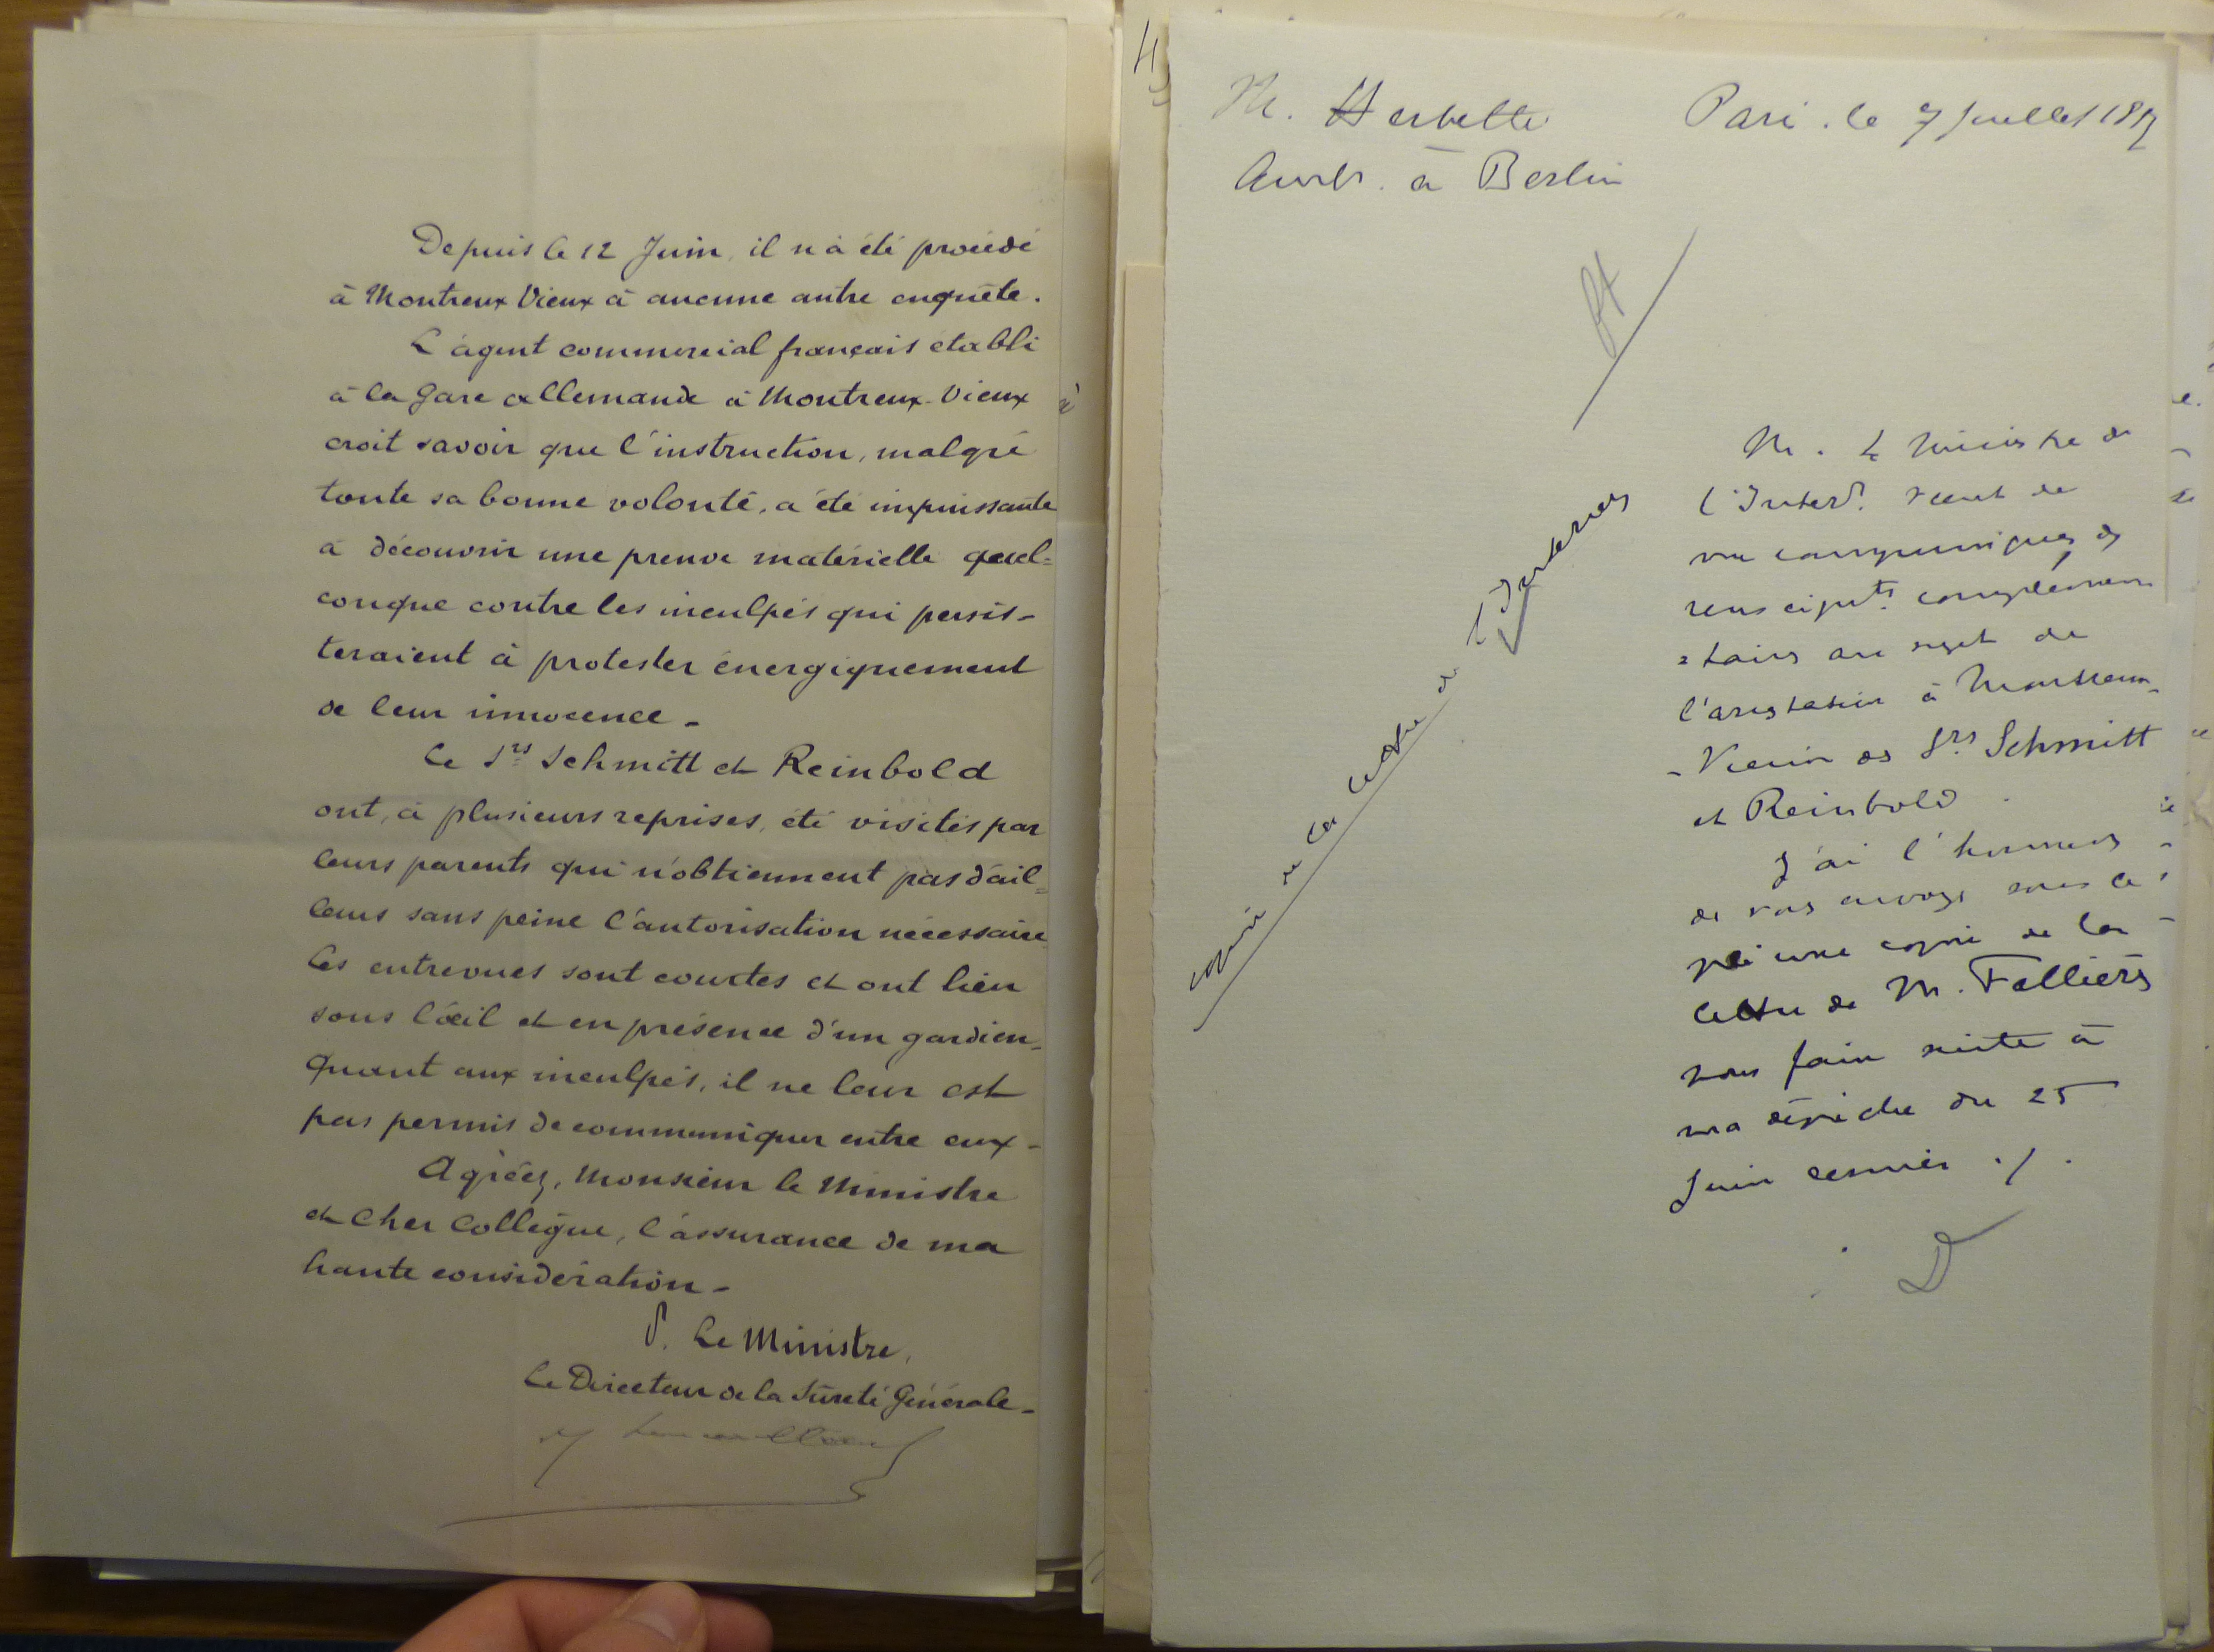 Depuis le 12 Juin, il n'a été procédé
à Montreux Vieux à aucune autre enquête.
L'agent commercial français établi
à la gare allemande à Montreux-Vieux
croit savoir que l'instruction, malgré
toute sa bonne volonté, a été impuissante
à découvrir une preuve matérielle quel=
conque contre les inculpés qui persis-
teraient à protester énergiquement
de leur innocence -
Le Srs Schmitt et Reinbold
ont, à plusieurs reprises, été visités par
leurs parents qui n'obtiennent pas d'ail=
leurs sans peine l'autorisation nécessaire
Les entrevues sont courtes et ont lieu
sous l'œil et en présence d'un gardien-
Quant aux inculpés, il ne leur est
pas permis de communiquer entre eux -
Agréez, Monsieur le Ministre
et Cher Collègue, l'assurance de ma
haute considération -
P. Le Ministre,
Le Directeur de la Sûreté Générale -
M. Herbette
Amb. à Berlin
Paris le 7 Juillet 18
copie de la lettre de l'Intérieur
M. le Ministre de
l'Intérr. vient de
me communiquer des
renseignts. complémen
=taires au sujet de
l'arrestation à Montreux
-Vieux des Srs Schmitt
et Reinbold.
J'ai l'honneur
de vous envoyer sous ce
pli une copie de la
lettre de M. Fallières
pour faire suite à
ma dépêche du 25
Juin dernier ./.
D